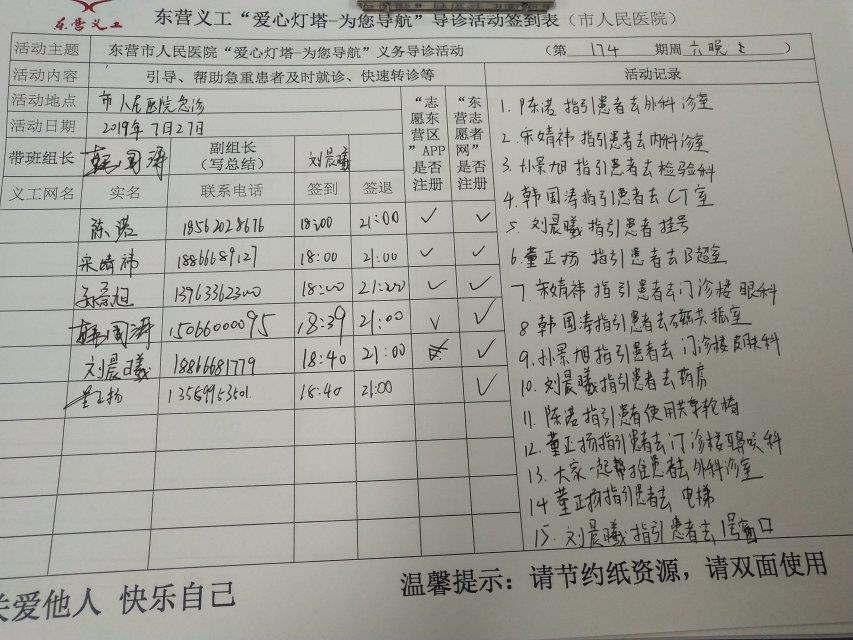 东营义工
东营义工“爱心灯塔-为您导航”导诊活动签到表（市人民医院）
活动主题 东营市人民医院“爱心灯塔-为您导航”义务导诊活动 （第 174 期周六晚上）
活动内容 引导、帮助急重患者及时就诊、快速转诊等 活动记录
活动地点 市人民医院急诊
活动日期 2019年7月27日
带班组长 韩国涛 副组长（写总结） 刘晨曦 “志愿东营区”APP是否注册 “东营志愿者网”是否注册
义工网名 实名 联系电话 签到 签退
陈诺 18562028676 18:00 21:00 ✓ ✓
宋婧祎 18866689127 18:00 21:00 ✓ ✓
孙景旭 13963362300 18:00 21:00 ✓ ✓
韩国涛 15066000095 18:39 21:00 ✓ ✓
刘晨曦 18866681779 18:40 21:00 ✓
董正扬 13589953501 18:40 21:00 ✓
1. 陈诺 指引患者去外科诊室
2. 宋婧祎 指引患者去内科诊室
3. 孙景旭 指引患者去检验科
4. 韩国涛指引患者去CT室
5. 刘晨曦指引患者 挂号
6. 董正扬 指引患者去B超室
7. 宋婧祎 指引患者去门诊楼 眼科
8 韩国涛指引患者去核磁共振室
9. 孙景旭指引患者去 门诊楼皮肤科
10. 刘晨曦指引患者去药房
11. 陈诺指引患者使用共享轮椅
12. 董正扬指引患者去门诊楼耳鼻喉科
13. 大家一起帮推患者去外科诊室
14 董正扬指引患者去 电梯
15. 刘晨曦指引患者去1号窗口
关爱他人 快乐自己
温馨提示：请节约纸资源，请双面使用